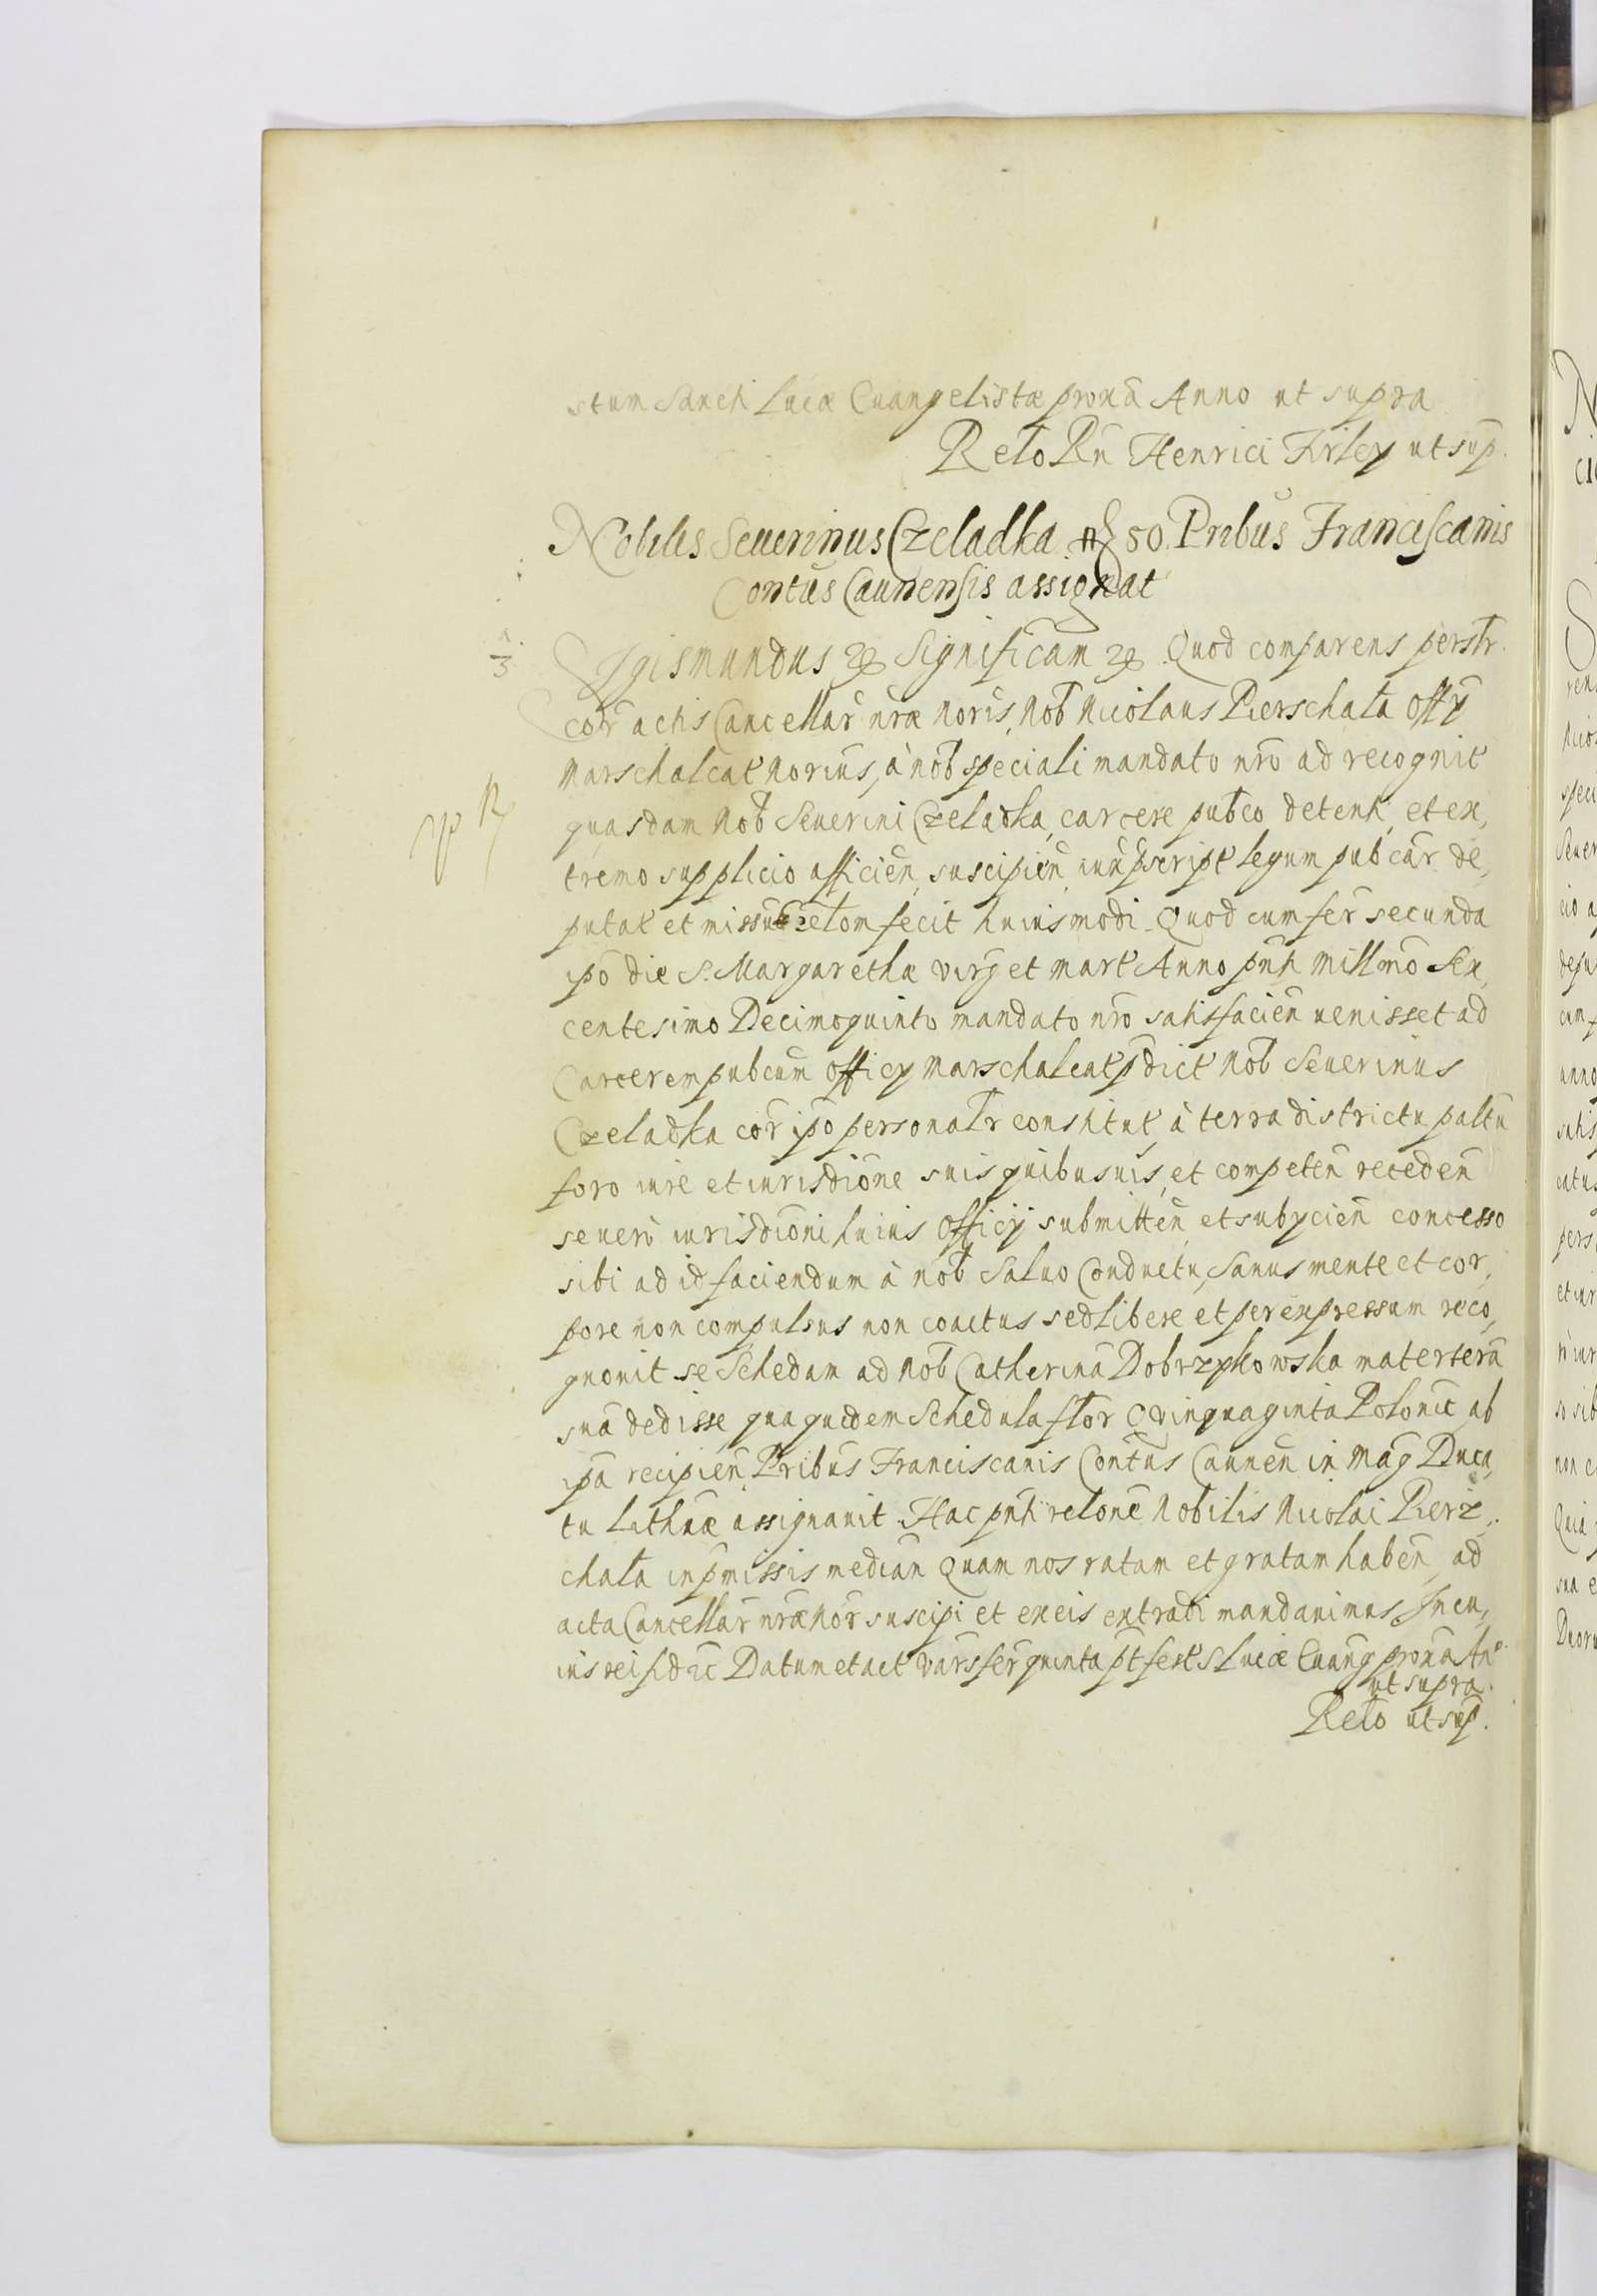 stum Sancti Lucæ Euangelistæ proxā Anno ut supra
Relō Rn̄ Henrici Firley ut sup.
Nobilis Seuerinus Czeladka fl 50. Prībus Franciscanis
Contūs Caunensis assignat
Sigismundus &c Significam &c Quod comparens perstr.
cor̄ actis Cancellar̄ nr̄æ Noris, Nob̄ Nicolaus Pierschała Offȳ
Marschalcat Norius, à nob̄ speciali mandato nrō ad recognit
quasdam Nob̄ Seuerini Czeladka, carcere pub̄co detent, et ex,
tremo supplicio afficien̄, suscipien̄, script legum pub cār de,
putat et missus relōm fecit huiusmodi. Quod cum fer̄ secunda
ipō die S. Margarethæ virḡ et mart Anno pn̄ti Millmō Sex,
centesimo Decimoquinto mandato nrō satisfacien̄ uenisset ad
Carcerem pubcūm Officÿ Marschalcat p̄dict Nob̄ Seuerinus
Czeladka cor̄ ipō personaltr constitut, à terra districtu paltū
foro iure et iurisdiōne suis quibusuis, et competen̄ receden̄
se uerò iurisdiōni huius Officÿ submitten̄, et subÿcien̄ concesso
sibi ad id faciendum à nob̄ Saluo Conductu, Sanus mente et cor,
pore non compulsus non coactus sed libere et per expressum reco,
gnouit se Schedam ad Nob̄ Catherinā Dobrzykowska materterā
suā dedisse qua quidem Schedula flor Quinquaginta Polonic ab
ipā recipien̄ Prībus Franciscanis Contūs Caunen̄ in Māg Duca,
tu Lithnæ assignauit. Hac pn̄ti relōne Nobilis Nicolai Pierz,
chała in p̄missis median̄ Quam nos ratam et gratam haben̄, ad
acta Cancellar̄ nr̄æ Nor̄ suscipi et ex eis extradi mandauimus. In cu,
ius rei fid &c Datum et act Vars fer̄ quinta pt fest S Lucæ Euanḡ proxā An͞o
ut supra.
Relō ut sup.